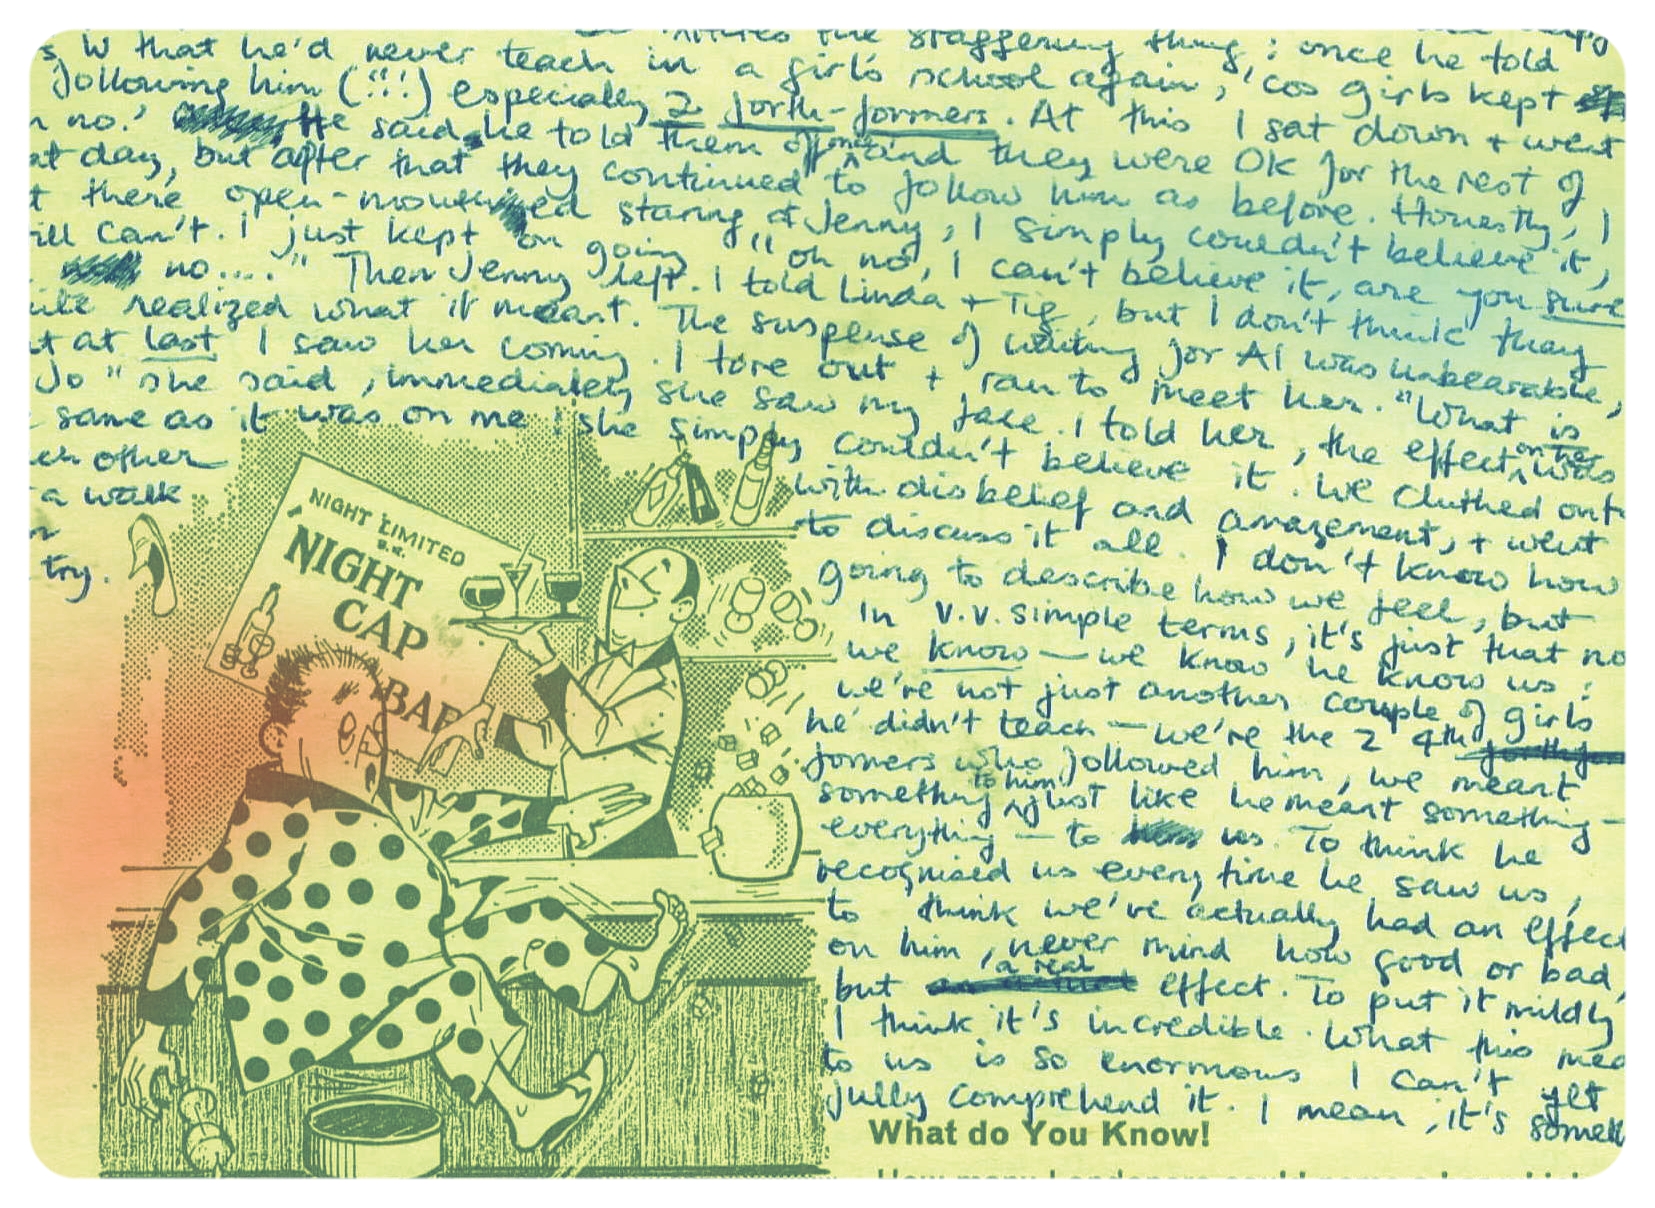 the staggering thing; once he told
s, W that he'd never teach in a girl's school again, 'cos girls kept
following him (!!!) especially 2 forth-formers. At this I sat down + went
no.' He said he told them off once and they were OK for the rest of
at day, but after that they continued to follow him as before. Honestly, I
t there open-mouthed staring at Jenny, I simply couldn't believe it,
ill can't. I just kept on going "oh no, I can't believe it, are you sure
no...." Then Jenny left. I told Linda + Tig, but I don't think they
uite realized what it meant. The suspense of waiting for Al was unbearable,
t at last I saw her coming. I tore out + ran to meet her. "What is
Jo" she said, immediately she saw my face. I told her, the effect on her was
same as it was on me: she simply couldn't believe it. We clutched
other with disbelief and amazement, + went out
a walk to discuss it all. I don't know how
going to describe how we feel, but
try. In v.v. simple terms, it's just that no
we know — we know he know us:
we're not just another couple of girls
he didn't teach — we're the 2 4th
formers who followed him, we meant
something to him, just like he meant something —
everything — to us. To think he
recognised us every time he saw us,
to think we've actually had an effect
on him, never mind how good or bad,
but a real effect. To put it mildly
I think it's incredible. What this mea
to us is so enormous I can't yet
fully comprehend it. I mean, it's some
NIGHT LIMITED
NIGHT
CAP
BAR
What do You Know!